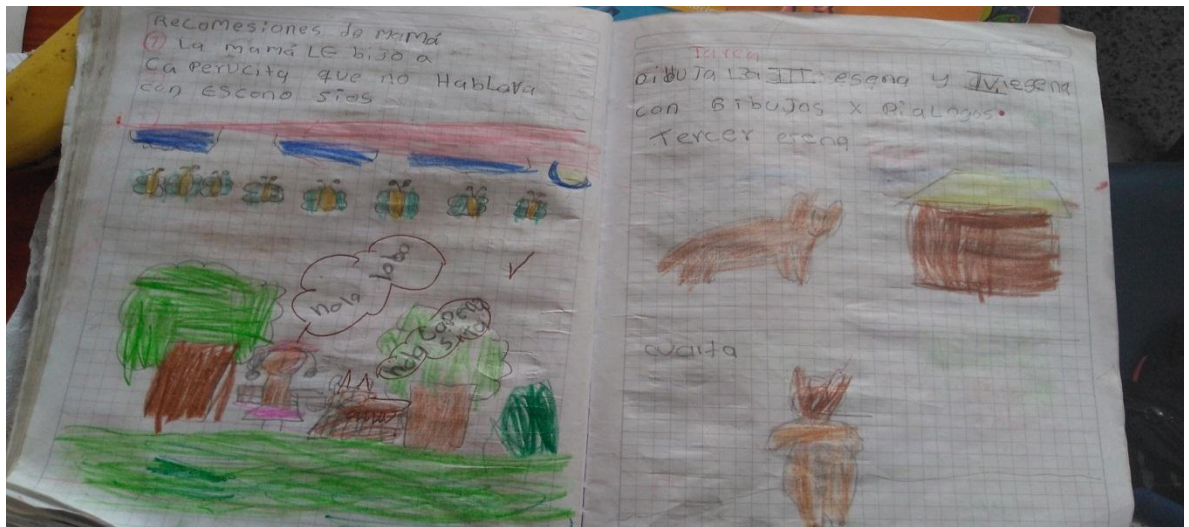 Recomesiones de mamá
① La mamá LE bijo a
Caperucita que no Hablava
con Escono sios
hola lobo
hola Caperu
sita
Tarea
Dibuja La III. esena y IV. esena
con Bibujos x Dialogos.
Tercer esena
cuarta